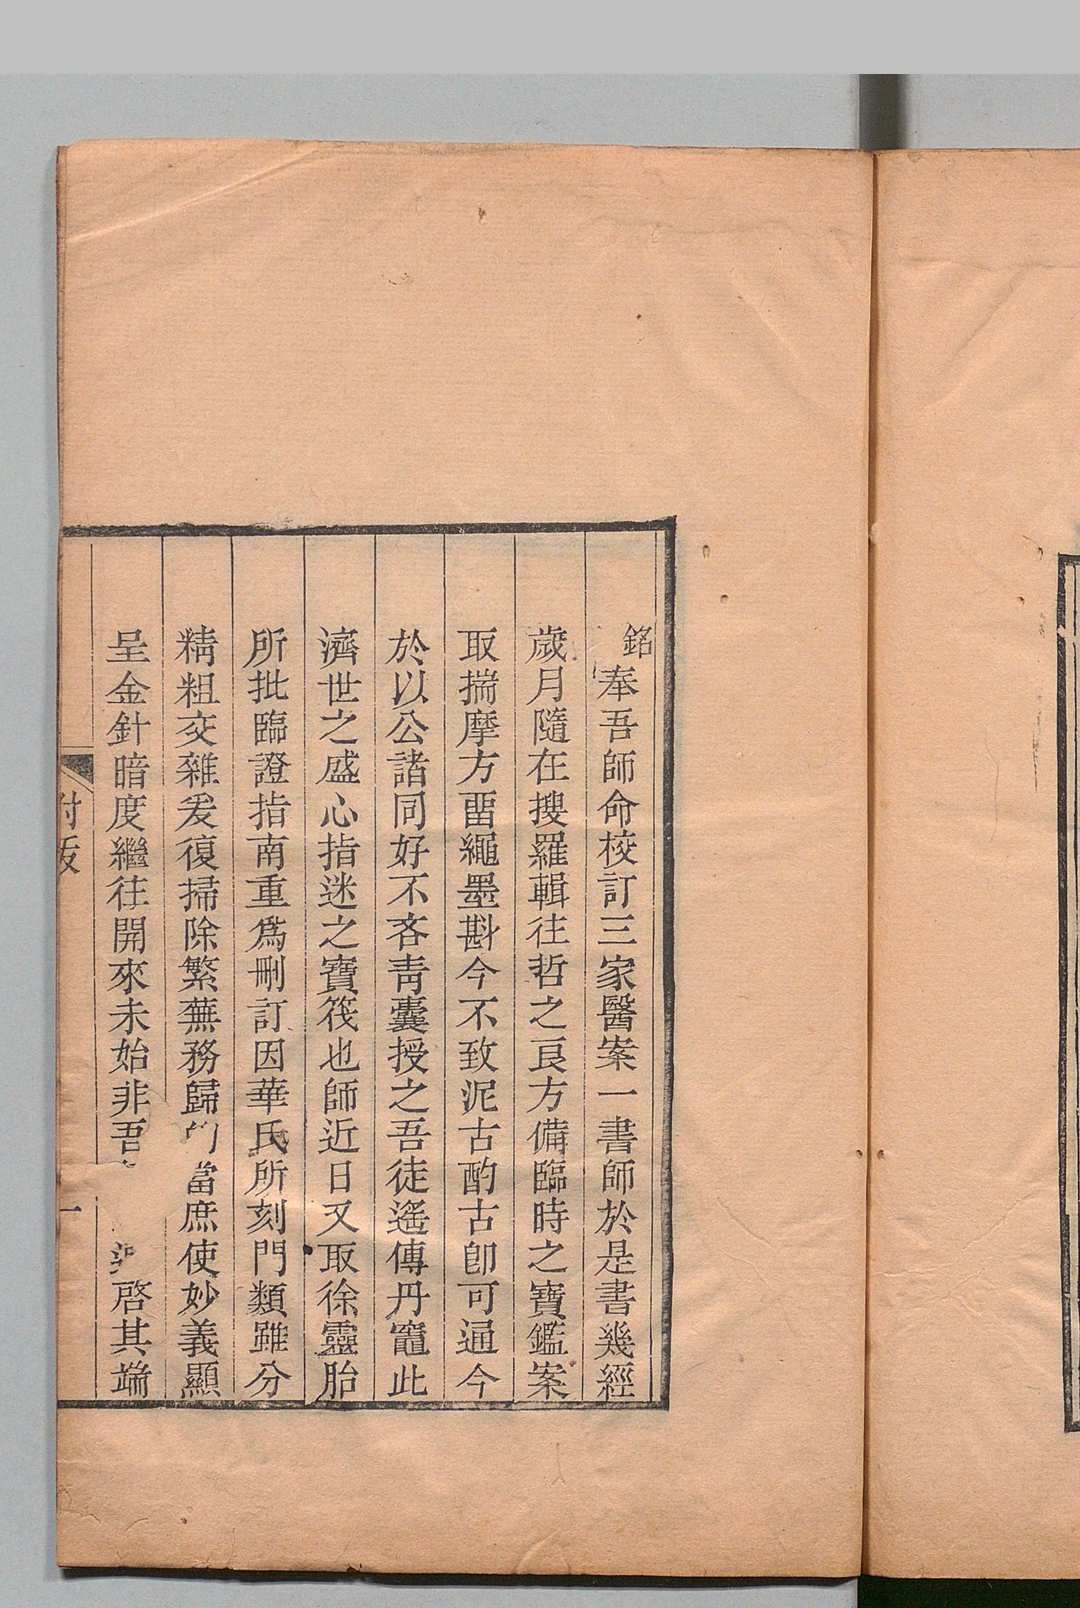 銘奉吾師命校訂三家醫案一書師於是書幾經
歲月隨在搜羅輯往哲之良方備臨時之寶鑑案
取揣摩方畱繩墨斟今不致泥古酌古卽可通今
於以公諸同好不吝靑囊授之吾徒遙傳丹竈此
濟世之盛心指迷之寶筏也師近日又取徐靈胎
所批臨證指南重爲刪訂因華氏所刻門類雖分
精粗交雜爰復掃除繁蕪務歸的當庶使妙義顯
呈金針暗度繼往開來未始非吾啓其端
付一